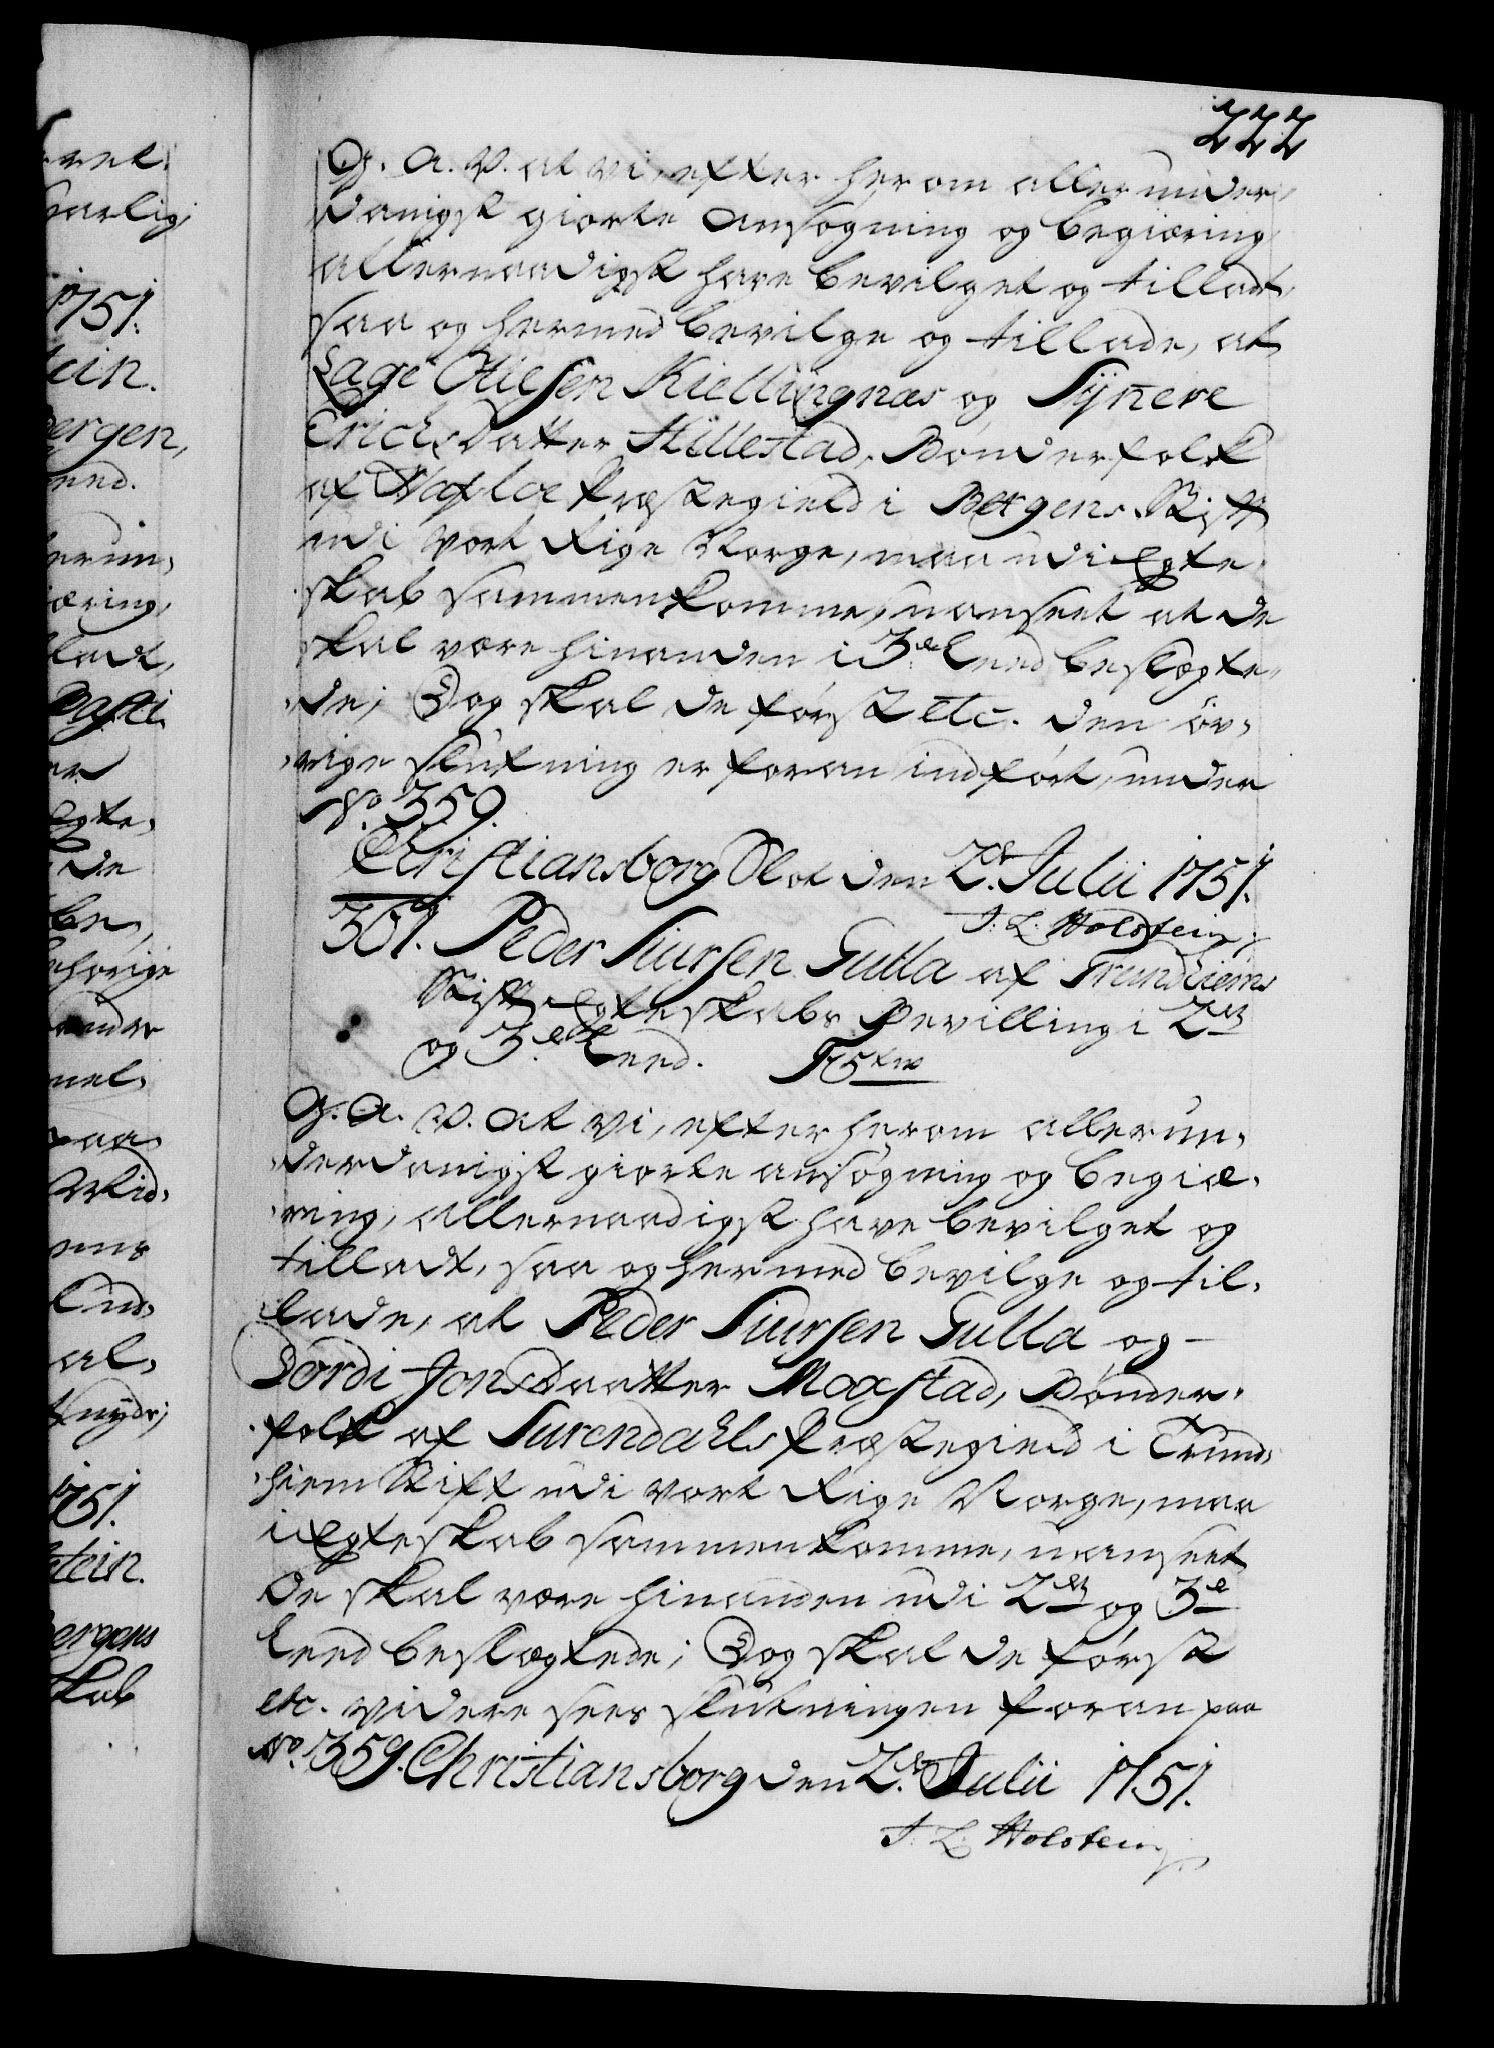 222
G. A. V. at vi, efter herom allerunder,
danigst giorte Ansøgning og begiæring
allernaadigst have bevilget og tilladt,
saa og hermed bevilge og tillade, at
Lage Olesen Kiellingnæs og Synneve
Erichsdatter Hillestad, Bønderfolk
af Hafsloe Præstegield i Bergens Stift
udi vort Rige Norge, maa udi Egte,
skab sammenkomme, uanseet at de
skal være hinanden i 3de Leed beslægte,
de; Dog skal de først etc. den öv,
rige Slutning er foran indført, under
No. 359.
Christiansborg Slot den 2de Julii 1751.
J. L. Holstein
361. Peder Siursen Gulla af Trundhiems
Stift Egteskabs Bevilling i 2den
og 3de Leed.
G. A. V. At vi, efter herom allerun,
derdanigst giorte ansøgning og begiæ,
ring, allernaadigst have bevilget og
tilladt, saa og hermed bevilge og til,
lade, at Peder Siursen Gulla og
Dordi Jonsdaatter Moxstad, Bønder,
folk af Surendahls Præstegield i Trund,
hiem Stift udi vort Rige Norge, maa
i Egteskab sammenkomme, uanseet
de skal være hinanden udi 2den og 3de
Leed beslægtede; Dog skal de først
etc. videre sees Slutningen foran paa
No. 359. Christiansborg den 2de Julii 1751.
J. L. Holstein